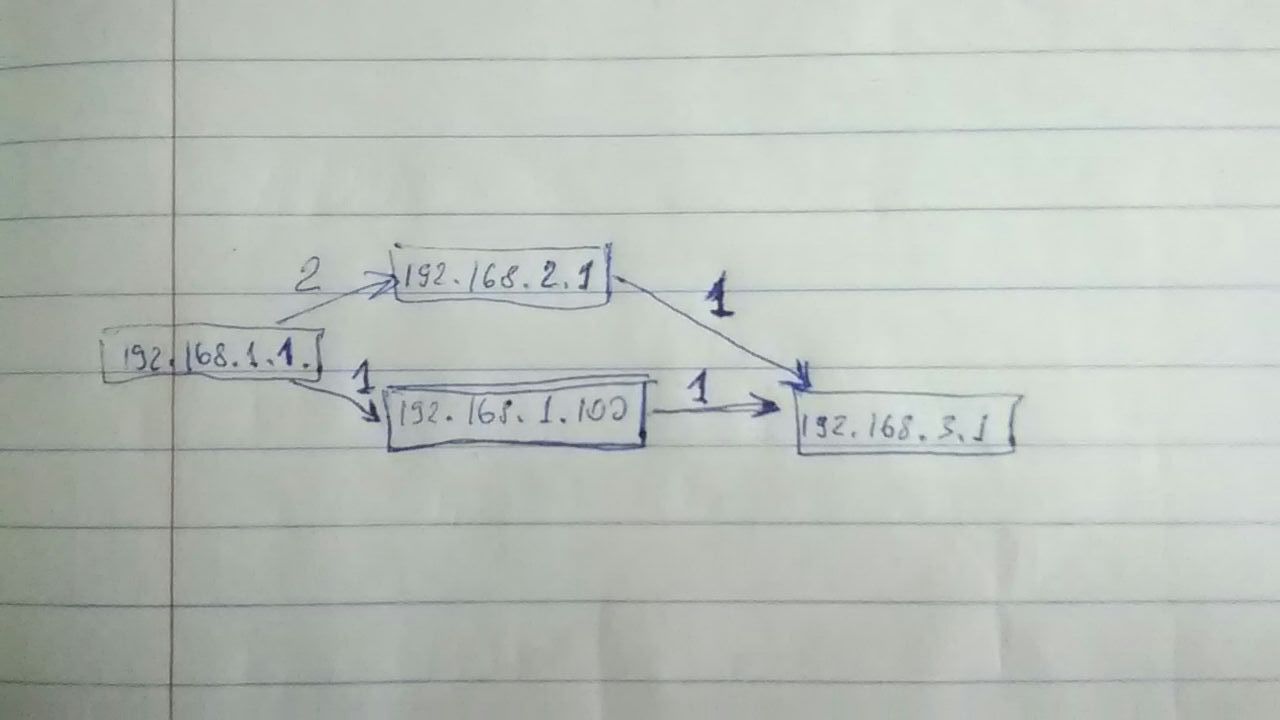 2
192.168.2.1
1
192.168.1.1.
1
192.168.1.100
1
192.168.3.1